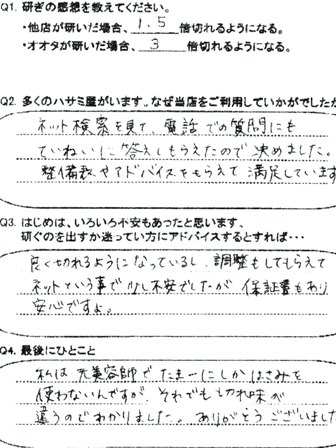 Q1. 研ぎの感想を教えてください。
・他店が研いだ場合、 1.5 倍切れるようになる。
・オオタが研いだ場合、 3 倍切れるようになる。
Q2. 多くのハサミ屋がいます。なぜ当店をご利用していかがでしたか
ネット検索を見て、電話での質問にも
ていねいに答えてもらえたので決めました。
整備表やアドバイスをもらえて満足しています
Q3. はじめは、いろいろ不安もあったと思います、
研ぐのを出すか迷ってい方にアドバイスするとすれば・・・
良く切れるようになっているし、調整もしてもらえて
ネットという事で少し不安でしたが保証書もあり
安心ですよ。
Q4. 最後にひとこと
私は元美容師でたまーにしかはさみを
使わないんですが、それでも切れ味が
違うのでわかりました。ありがとうございました